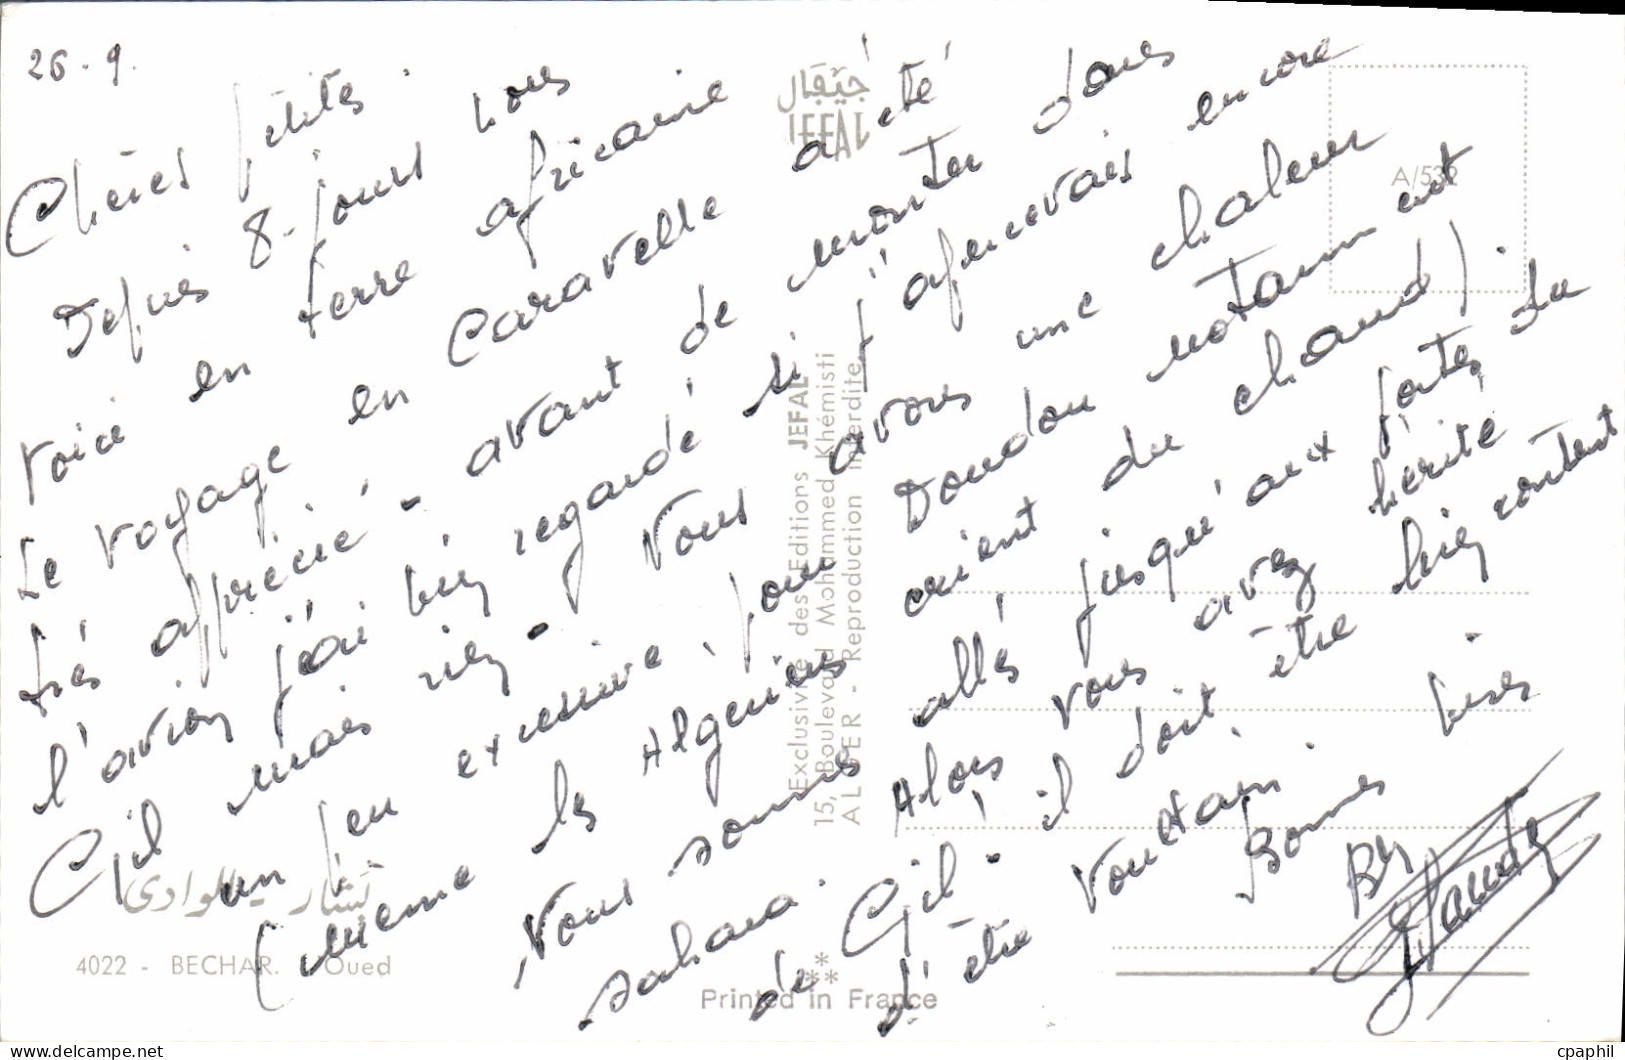 26 - 9.
Chères petites.
Depuis 8 jours nous
voici en terre africaine
Le voyage en Caravelle a été
très apprécié - avant de monter dans
l'avion j'ai bien regardé si j'apercevais encore
Gil mais rien - Nous avons une chaleur
un peu excessive, pour Doudou notamment
(même les Algériens crient du chaud).
Nous sommes allés jusqu'aux portes du
sahara. Alors vous avez hérité
de Gil - il doit être bien content
d'être Voultain.
Bonnes bises
جيفال
JEFAL
A/532
Exclusivité des Editions JEFAL
15, Boulevard Mohammed Khémisti
ALGER - Reproduction interdite
بشار - الوادي
4022 - BECHAR. L'Oued
Printed in France
cpaphil